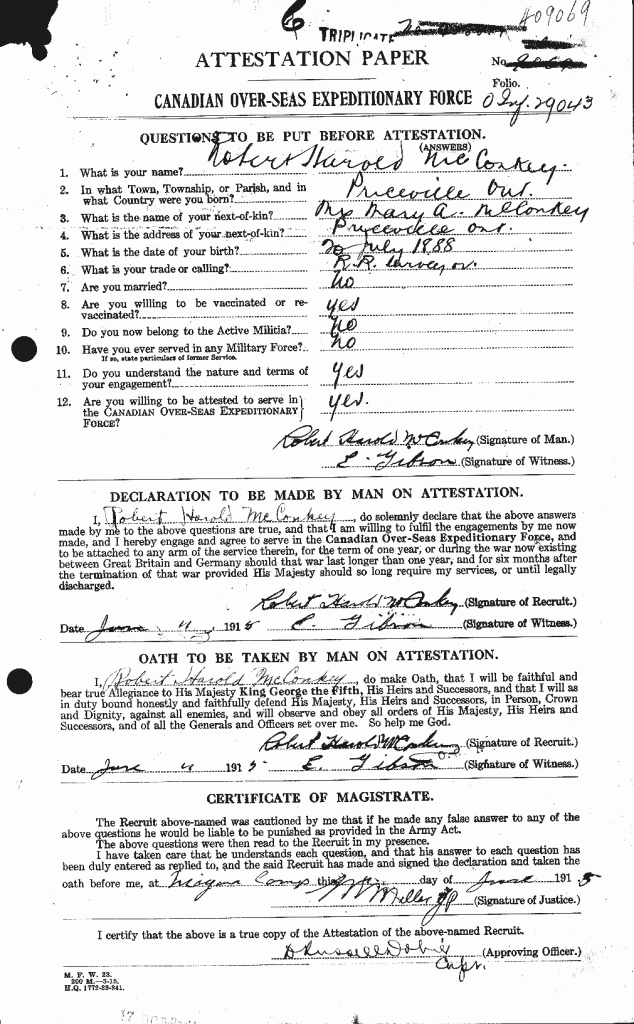 6
TRIPLICATE
409069
ATTESTATION PAPER
No.
Folio.
CANADIAN OVER-SEAS EXPEDITIONARY FORCE
QUESTIONS TO BE PUT BEFORE ATTESTATION.
(ANSWERS)
1. What is your name? Robert Harold McConkey.
2. In what Town, Township, or Parish, and in
what Country were you born? Priceville Ont.
3. What is the name of your next-of-kin? Mrs Mary A. McConkey
4. What is the address of your next-of-kin? Priceville Ont.
5. What is the date of your birth? 20 July 1888
6. What is your trade or calling? R.R.
7. Are you married? no
8. Are you willing to be vaccinated or re-
vaccinated? yes
9. Do you now belong to the Active Militia? no
10. Have you ever served in any Military Force? no
If so, state particulars of former Service.
11. Do you understand the nature and terms of
your engagement? yes
12. Are you willing to be attested to serve in
the CANADIAN OVER-SEAS EXPEDITIONARY
FORCE? yes.
Robert Harold McConkey (Signature of Man.)
E. Gibson (Signature of Witness.)
DECLARATION TO BE MADE BY MAN ON ATTESTATION.
I, Robert Harold McConkey, do solemnly declare that the above answers
made by me to the above questions are true, and that I am willing to fulfil the engagements by me now
made, and I hereby engage and agree to serve in the Canadian Over-Seas Expeditionary Force, and
to be attached to any arm of the service therein, for the term of one year, or during the war now existing
between Great Britain and Germany should that war last longer than one year, and for six months after
the termination of that war provided His Majesty should so long require my services, or until legally
discharged.
Robert Harold McConkey (Signature of Recruit.)
Date June 4 1915 E. Gibson (Signature of Witness.)
OATH TO BE TAKEN BY MAN ON ATTESTATION.
I, Robert Harold McConkey, do make Oath, that I will be faithful and
bear true Allegiance to His Majesty King George the Fifth, His Heirs and Successors, and that I will as
in duty bound honestly and faithfully defend His Majesty, His Heirs and Successors, in Person, Crown
and Dignity, against all enemies, and will observe and obey all orders of His Majesty, His Heirs and
Successors, and of all the Generals and Officers set over me. So help me God.
Robert Harold McConkey (Signature of Recruit.)
Date June 4 1915 E. Gibson (Signature of Witness.)
CERTIFICATE OF MAGISTRATE.
The Recruit above-named was cautioned by me that if he made any false answer to any of the
above questions he would be liable to be punished as provided in the Army Act.
The above questions were then read to the Recruit in my presence.
I have taken care that he understands each question, and that his answer to each question has
been duly entered as replied to, and the said Recruit has made and signed the declaration and taken the
oath before me, at Niagara Camp this day of June 1915
Miller JP (Signature of Justice.)
I certify that the above is a true copy of the Attestation of the above-named Recruit.
D Russell Dobie (Approving Officer.)
Capt.
M. F. W. 23.
200 M.—3-15.
H.Q. 1772-39-841.